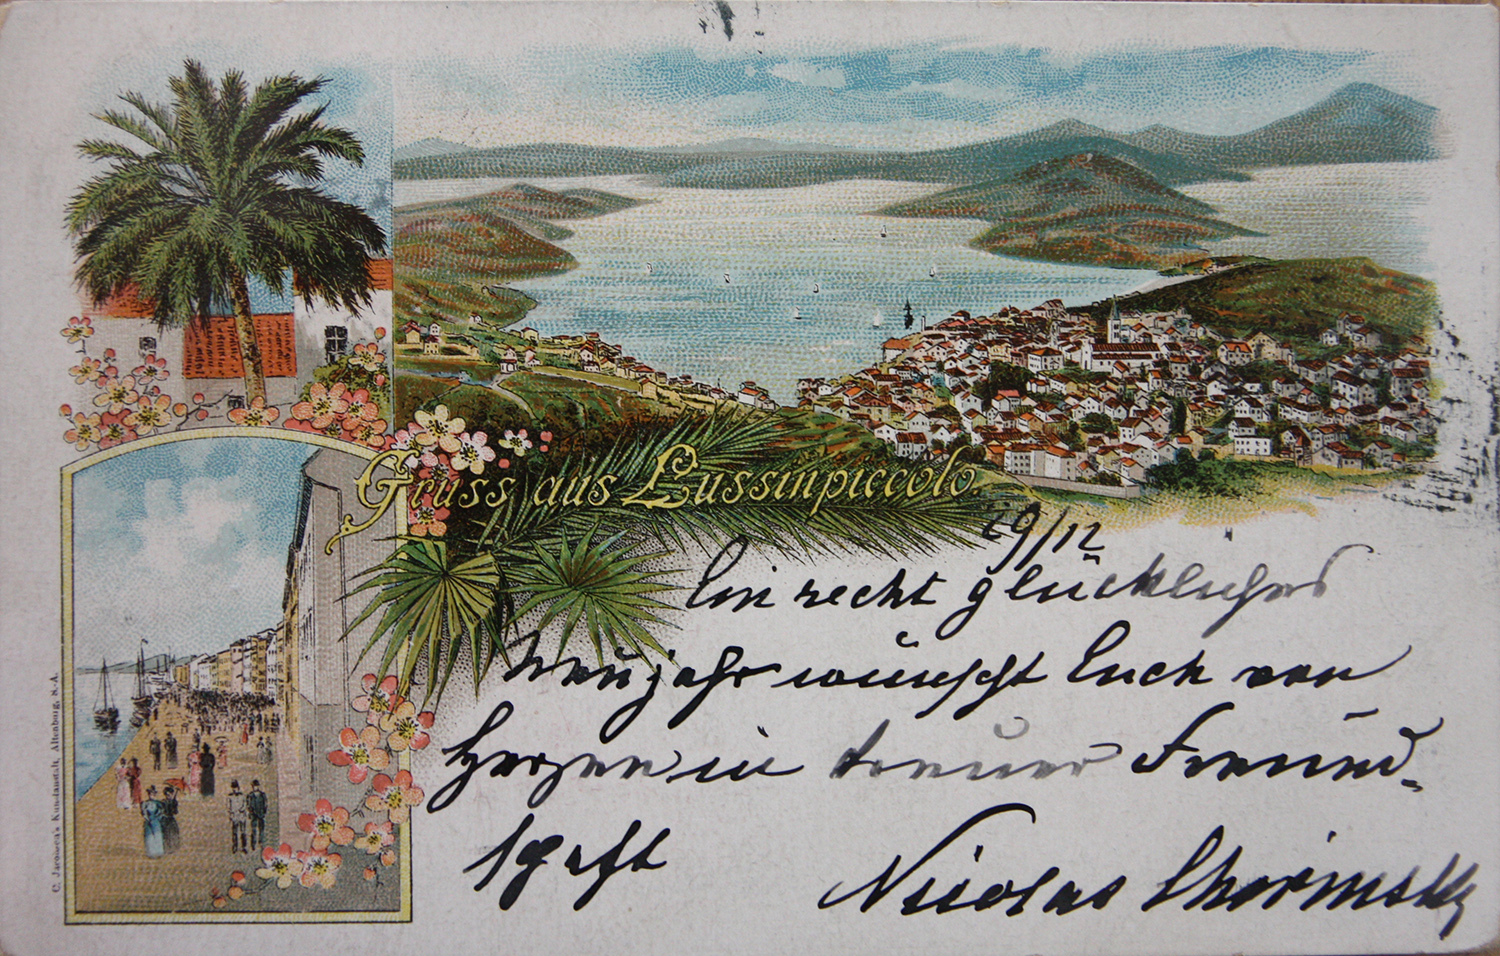 Gruss aus Lussinpiccolo.
29/12
Ein recht glückliches
Neujahr wünscht Euch von
Herzen in treuer Freund-
schaft
Nicolas Chorinsky
C. Jacobsen's Kunstanstalt, Altenburg, S.A.